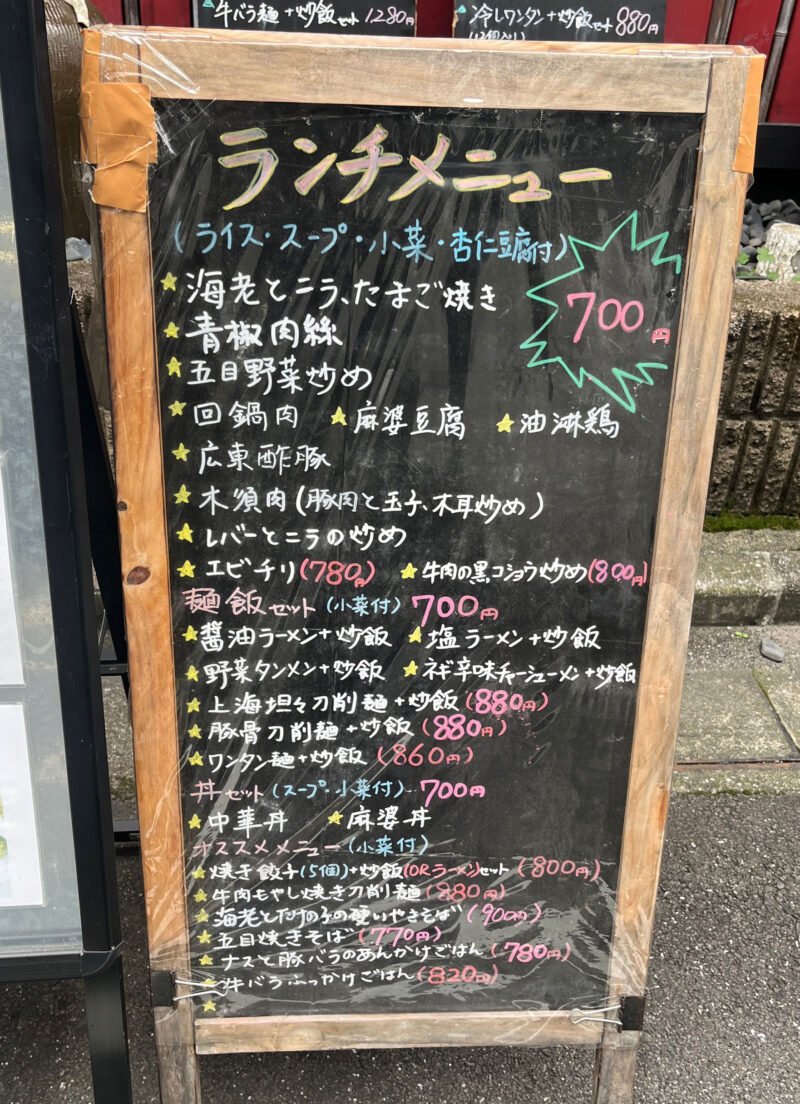 牛バラ麺+炒飯セット 1280円
冷しワンタン+炒飯セット 880円
(12個入り)
ランチメニュー
(ライス・スープ・小菜・杏仁豆腐付)
700円
★海老とニラ、たまご焼き
★青椒肉絲
★五目野菜炒め
★回鍋肉 ★麻婆豆腐 ★油淋鶏
★広東酢豚
★木須肉(豚肉と玉子、木耳炒め)
★レバーとニラの炒め
★エビチリ(780円) ★牛肉の黒コショウ炒め(800円)
麺飯セット(小菜付) 700円
★醤油ラーメン+炒飯 ★塩ラーメン+炒飯
★野菜タンメン+炒飯 ★ネギ辛味チャーシューメン+炒飯
★上海坦々刀削麺+炒飯(880円)
★豚骨刀削麺+炒飯(880円)
★ワンタン麺+炒飯(860円)
丼セット(スープ・小菜付) 700円
★中華丼 ★麻婆丼
オススメメニュー(小菜付)
★焼き餃子(5個)+炒飯(ORラーメン)セット(800円)
★牛肉もやし焼き刀削麺(880円)
★海老とたけの子の硬いやきそば(900円)
★五目焼きそば(770円)
★ナスと豚バラのあんかけごはん(780円)
★牛バラぶっかけごはん(820円)
★